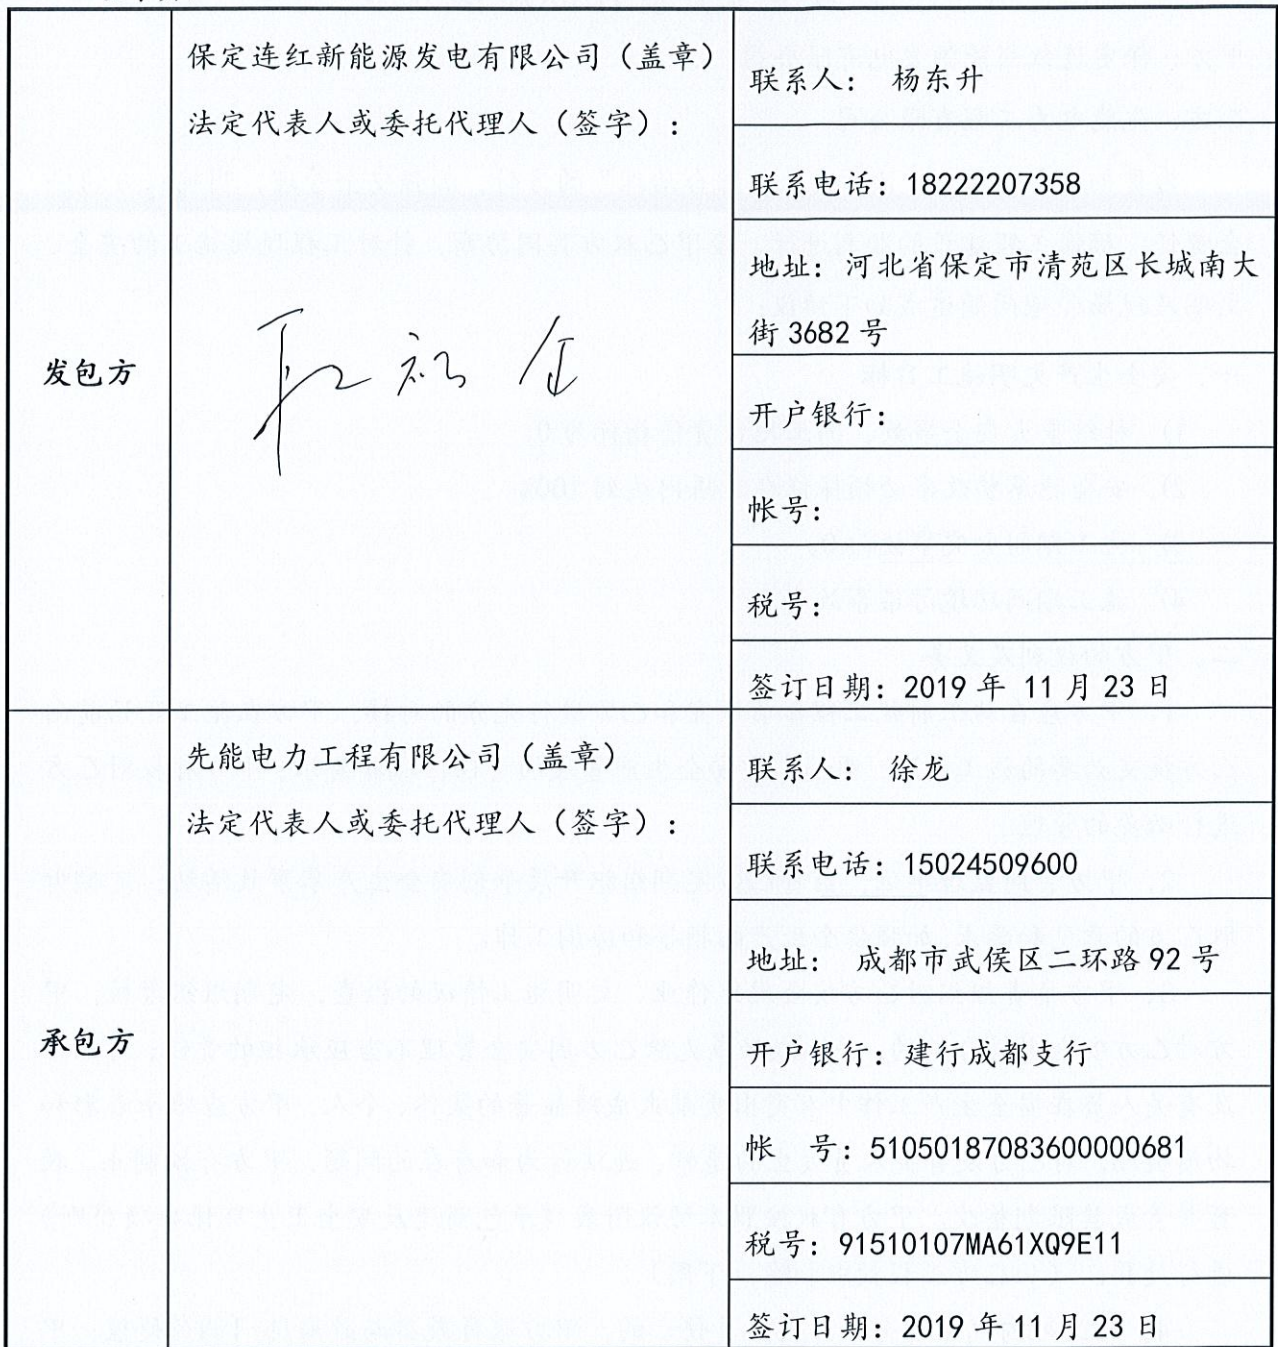 发包方
保定连红新能源发电有限公司（盖章）
法定代表人或委托代理人（签字）：
联系人： 杨东升
联系电话：18222207358
地址：河北省保定市清苑区长城南大
街 3682 号
开户银行：
帐号：
税号：
签订日期：2019 年 11 月 23 日
承包方
先能电力工程有限公司（盖章）
法定代表人或委托代理人（签字）：
联系人： 徐龙
联系电话：15024509600
地址： 成都市武侯区二环路 92 号
开户银行：建行成都支行
帐 号：51050187083600000681
税号：91510107MA61XQ9E11
签订日期：2019 年 11 月 23 日